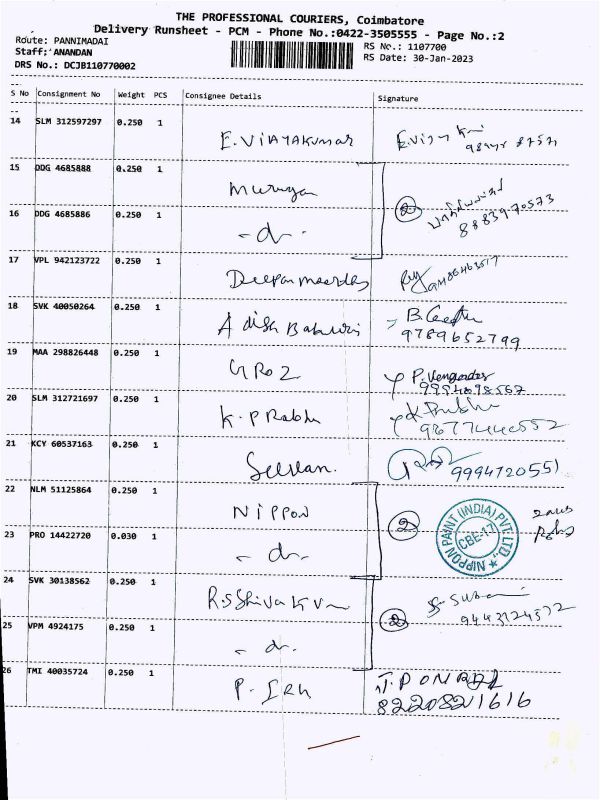 THE PROFESSIONAL COURIERS, Coimbatore
Delivery Runsheet - PCM - Phone No.:0422-3505555 - Page No.:2
Route: PANNIMADAI
RS No.: 1107700
Staff: ANANDAN
RS Date: 30-Jan-2023
DRS No.: DCJB110770002
S No Consignment No Weight PCS Consignee Details Signature
14 SLM 312597297 0.250 1 E. VIJAYAKUMAR
15 DDG 4685888 0.250 1 Murugan
② 8883970573
16 DDG 4685886 0.250 1 - do -
17 VPL 942123722 0.250 1
18 SVK 40050264 0.250 1 Adish
B.
9789652799
19 MAA 298826448 0.250 1 GRO 2
P. Vengades
20 SLM 312721697 0.250 1 K. P Rabhu
K. Prabhu
21 KCY 60537163 0.250 1
9994720551
22 NLM 51125864 0.250 1 NIPPON
② NIPPON PAINT (INDIA) PVT. LTD. CBE-17
23 PRO 14422720 0.030 1 - do -
24 SVK 30138562 0.250 1 R.S Shiva Kum
② 9443124372
25 VPM 4924175 0.250 1 - do -
26 TMI 40035724 0.250 1 P.
8220821616